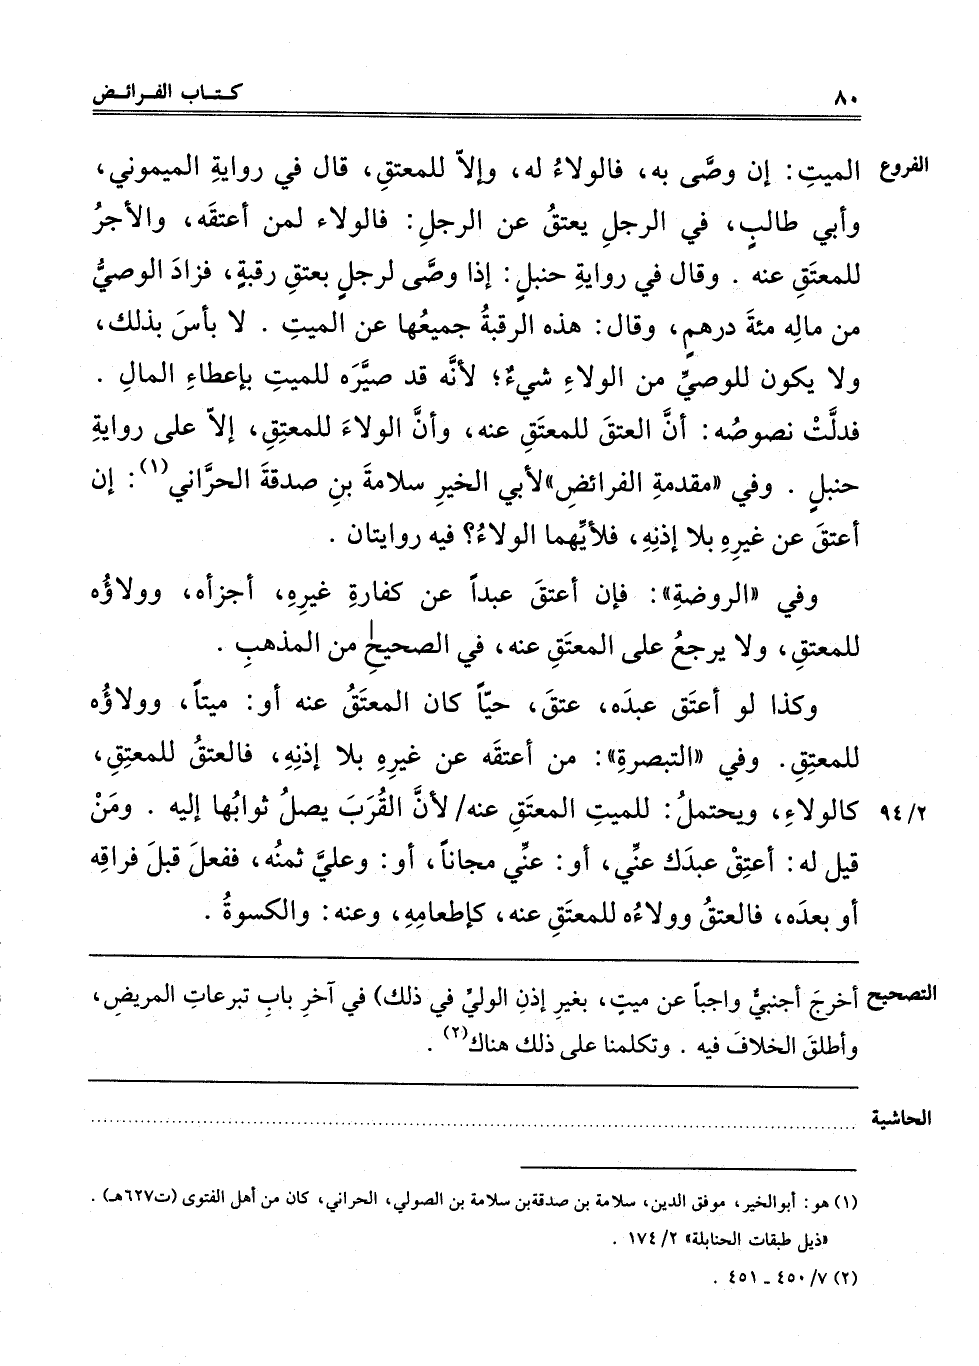 ٨٠ كتاب الفرائض
الفروع الميتِ: إن وصَّى به، فالولاءُ له، وإلاّ للمعتقِ، قال في روايةِ الميموني،
وأبي طالبٍ، في الرجلِ يعتقُ عن الرجلِ: فالولاء لمن أعتقَه، والأجرُ
للمعتَقِ عنه. وقال في روايةِ حنبلٍ: إذا وصَّى لرجلٍ بعتقِ رقبةٍ، فزادَ الوصيُّ
من مالِه مئةَ درهمٍ، وقال: هذه الرقبةُ جميعُها عن الميتِ. لا بأسَ بذلك،
ولا يكون للوصيِّ من الولاءِ شيءٌ؛ لأنَّه قد صيَّرَه للميتِ بإعطاءِ المالِ.
فدلَّتْ نصوصُه: أنَّ العتقَ للمعتَقِ عنه، وأنَّ الولاءَ للمعتِقِ، إلاّ على روايةِ
حنبلٍ. وفي «مقدمةِ الفرائضِ» لأبي الخيرِ سلامةَ بنِ صدقةَ الحرَّاني(١): إن
أعتقَ عن غيرِهِ بلا إذنِهِ، فلأيِّهما الولاءُ؟ فيه روايتان.
وفي «الروضةِ»: فإن أعتقَ عبداً عن كفارةِ غيرِهِ، أجزأه، وولاؤُه
للمعتقِ، ولا يرجعُ على المعتَقِ عنه، في الصحيحِ من المذهبِ.
وكذا لو أعتَق عبدَه، عتقَ، حيّاً كان المعتَقُ عنه أو: ميتاً، وولاؤُه
للمعتِقِ. وفي «التبصرةِ»: من أعتقَه عن غيرِهِ بلا إذنِهِ، فالعتقُ للمعتِقِ،
٩٤/٢ كالولاءِ، ويحتملُ: للميتِ المعتَقِ عنه/ لأنَّ القُرَبَ يصلُ ثوابُها إليه. ومَنْ
قيل له: أعتِقْ عبدَك عنِّي، أو: عنِّي مجاناً، أو: وعليَّ ثمنُه، ففعلَ قبلَ فراقِهِ
أو بعدَه، فالعتقُ وولاءُه للمعتَقِ عنه، كإطعامِهِ، وعنه: والكسوةُ.
التصحيح أخرجَ أجنبيٌّ واجباً عن ميتٍ، بغيرِ إذنِ الوليِّ في ذلك) في آخرِ بابِ تبرعاتِ المريضِ،
وأطلقَ الخلافَ فيه. وتكلمنا على ذلك هناك(٢).
الحاشية
(١) هو: أبو الخير، موفق الدين، سلامة بن صدقة بن سلامة بن الصولي، الحراني، كان من أهل الفتوى (ت٦٢٧هـ).
«ذيل طبقات الحنابلة» ١٧٤/٢.
(٢) ٤٥٠/٧ ـ ٤٥١.